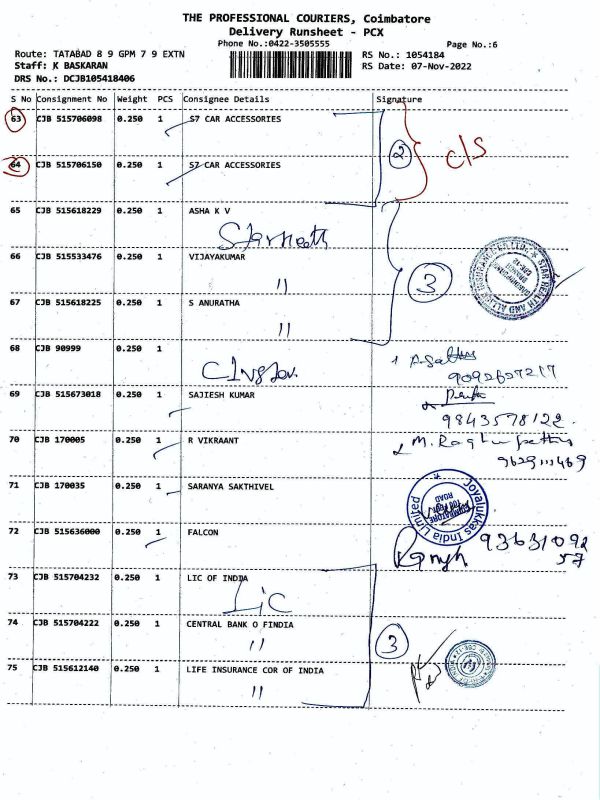 THE PROFESSIONAL COURIERS, Coimbatore
Delivery Runsheet - PCX
Phone No.:0422-3505555
Page No.:6
Route: TATABAD 8 9 GPM 7 9 EXTN
RS No.: 1054184
Staff: K BASKARAN
RS Date: 07-Nov-2022
DRS No.: DCJB105418406
S No Consignment No Weight PCS Consignee Details Signature
63 CJB 515706098 0.250 1 S7 CAR ACCESSORIES
2 C/S
64 CJB 515706150 0.250 1 S7 CAR ACCESSORIES
65 CJB 515618229 0.250 1 ASHA K V
66 CJB 515533476 0.250 1 VIJAYAKUMAR
"
3
67 CJB 515618225 0.250 1 S ANURATHA
"
68 CJB 90999 0.250 1
69 CJB 515673018 0.250 1 SAJIESH KUMAR
9843578122
70 CJB 170005 0.250 1 R VIKRAANT
71 CJB 170035 0.250 1 SARANYA SAKTHIVEL
Joyalukkas India Limited
100 FEET ROAD
COIMBATORE
72 CJB 515636000 0.250 1 FALCON
93631092
57
73 CJB 515704232 0.250 1 LIC OF INDIA
LIC
74 CJB 515704222 0.250 1 CENTRAL BANK O FINDIA
"
3
75 CJB 515612140 0.250 1 LIFE INSURANCE COR OF INDIA
"